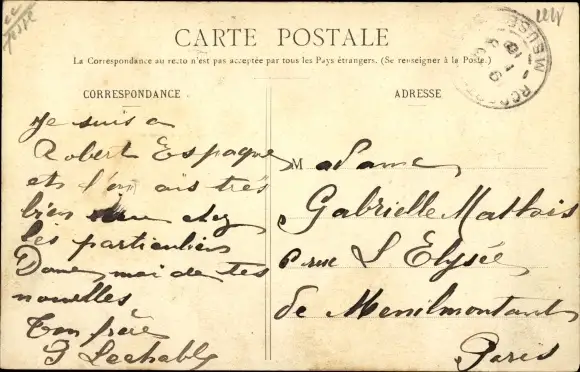 CARTE POSTALE
La Correspondance au recto n'est pas acceptée par tous les Pays étrangers. (Se renseigner à la Poste.)
CORRESPONDANCE
Je suis a
Robert Espagne
très
bien chez
les particuliers
Donne moi de tes
nouvelles
Ton frère
ADRESSE
Madame
Gabrielle
rue L Elysée
de Menilmontant
Paris
MEUSE